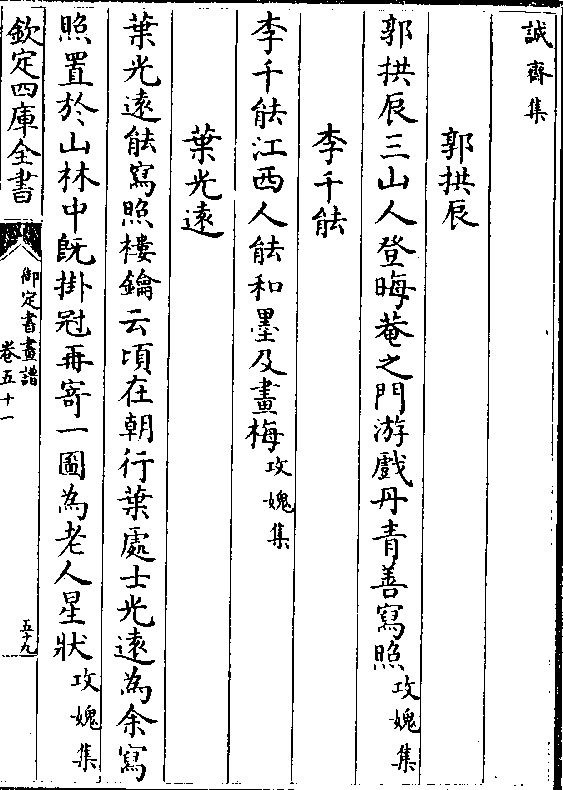 誠齋集
郭拱辰
郭拱辰三山人登晦菴之門游戲丹青善寫照攻媿集
李千能
李千能江西人能和墨及畫梅攻媿集
葉光遠
葉光遠能寫照樓鑰云頃在朝行葉處士光遠為余寫
照置於山林中既掛冠再寄一圖為老人星狀攻媿集
欽定四庫全書
御定書畫譜
卷五十一
五十九